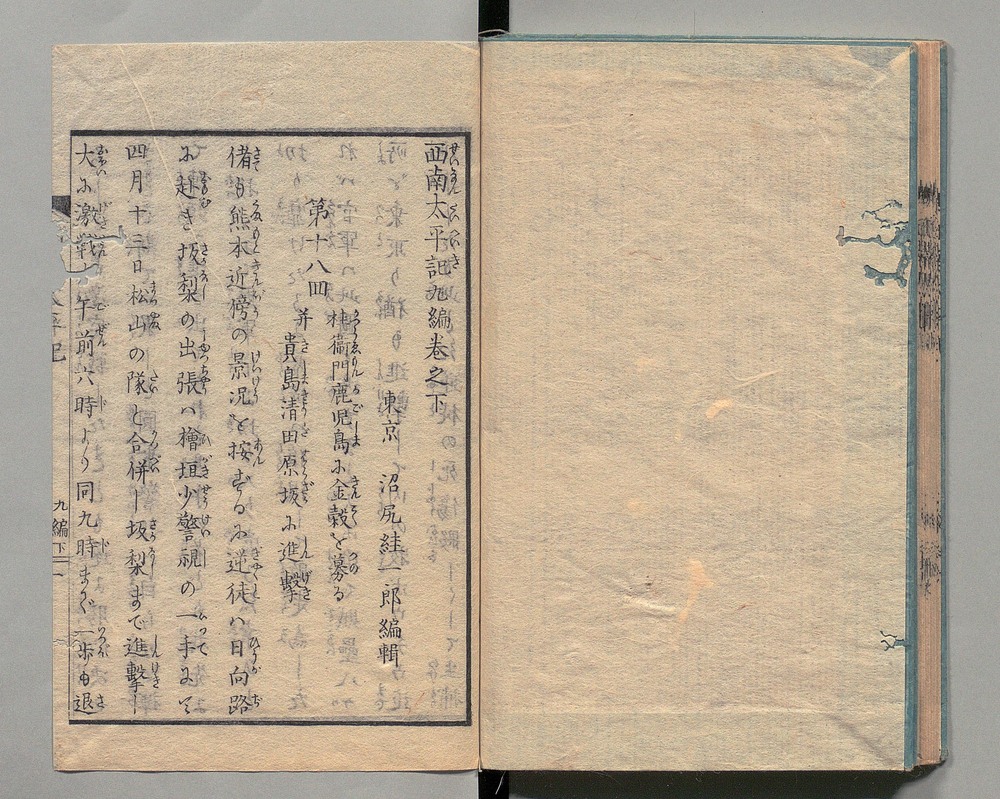 西南太平記九編巻之下
東京 沼尻絓一郎編輯
第十八回
林衛門鹿児島に金穀を募る
并 貴島清田原坂に進撃
偖も熊本近傍の景况を按ずるに逆徒ハ日向路
に赴き坂梨の出張ハ檜垣少警視の一手にて
四月十三日松山の隊と合併し坂梨まで進撃し
大に激戦 午前八時より同九時まで一歩も退
九編下 一